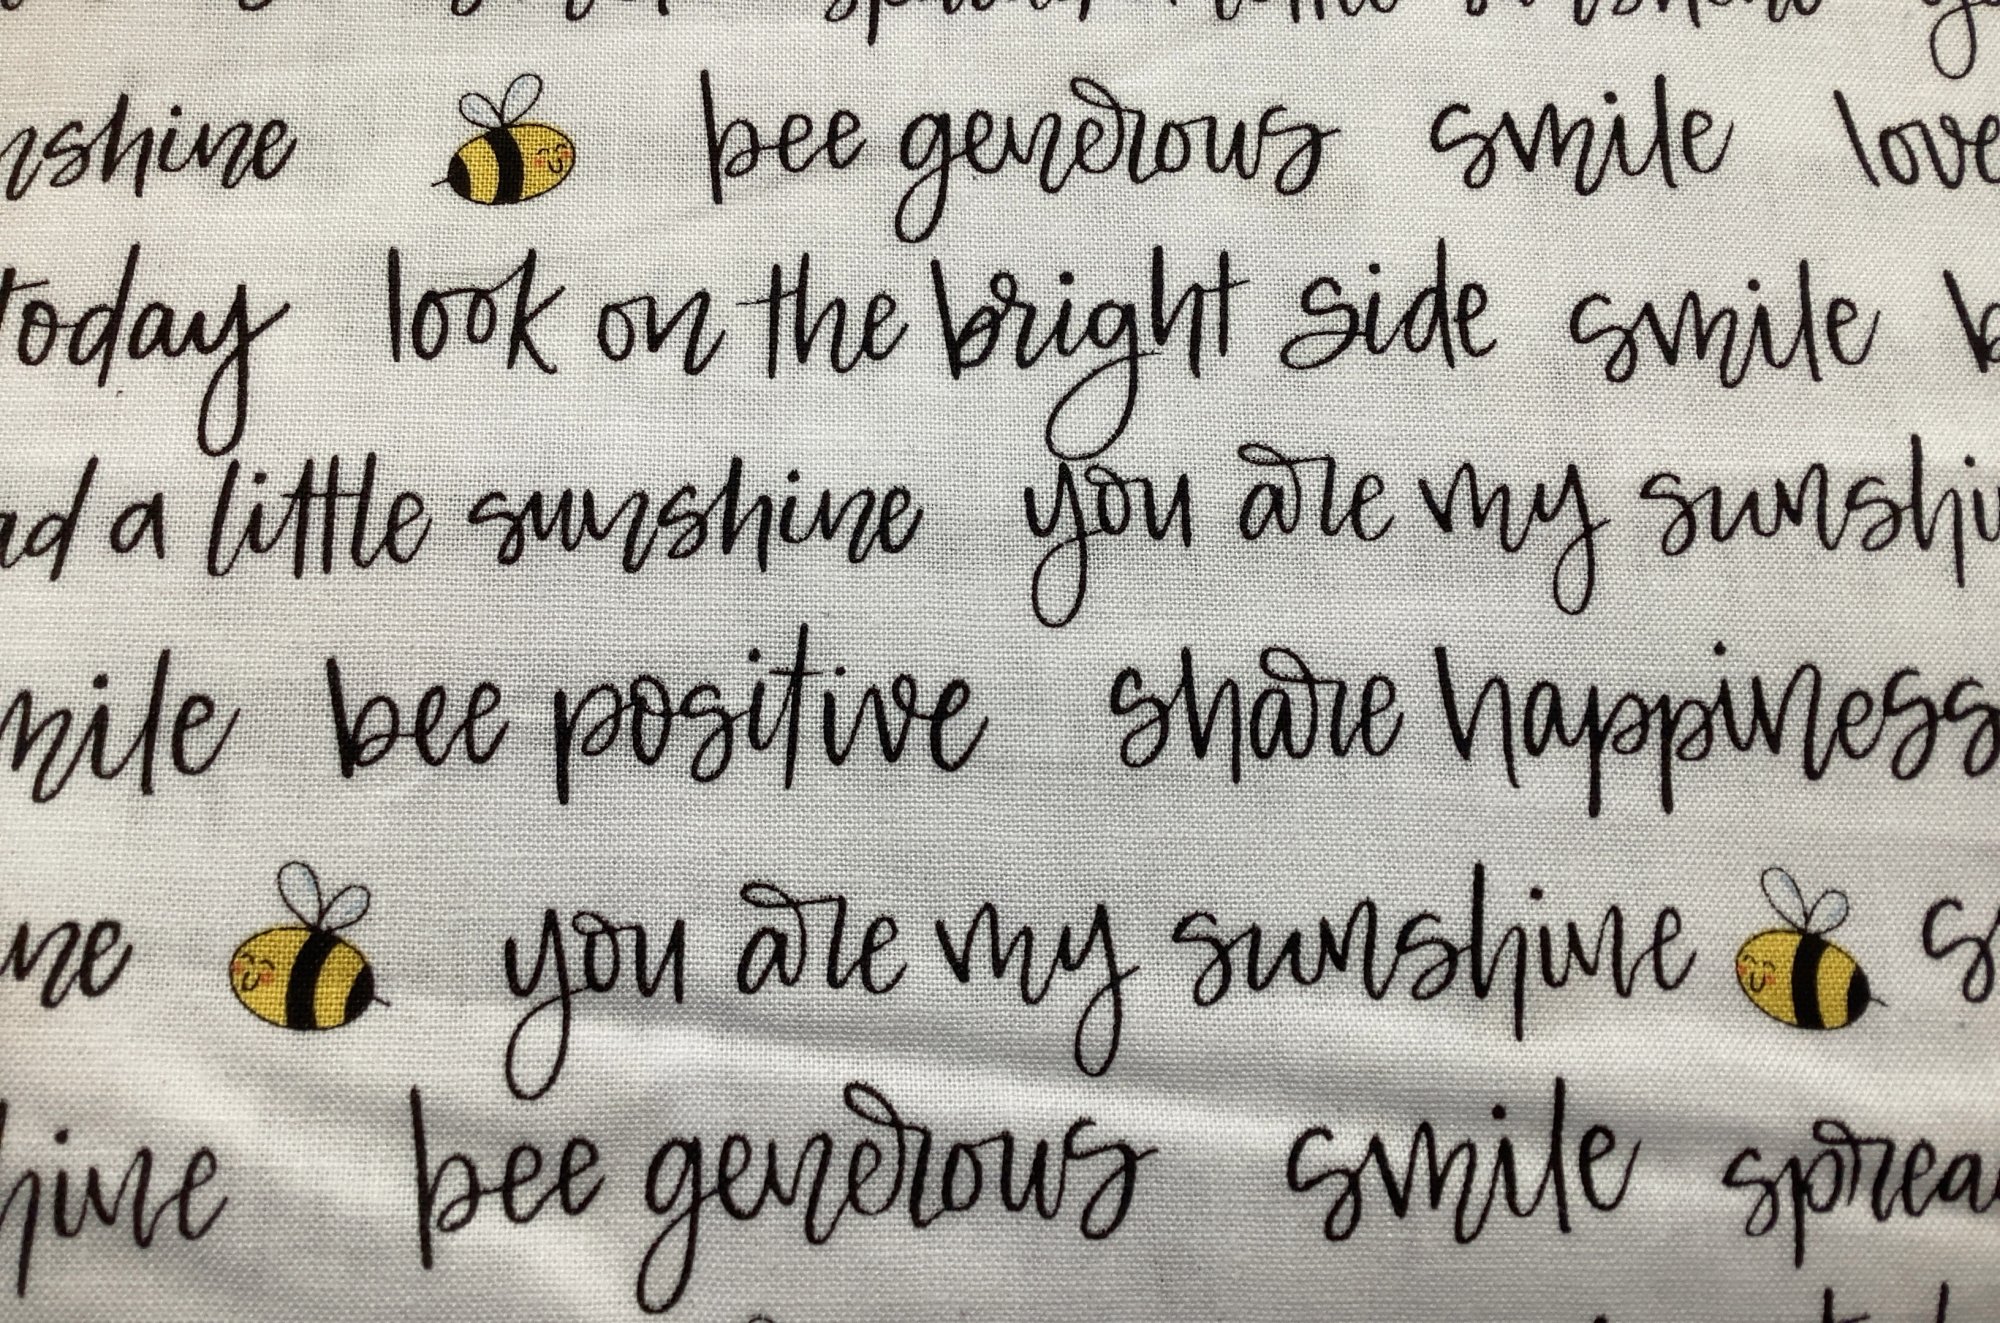 spread a little sunshine
nshine bee generous smile love
today look on the bright side smile b
ad a little sunshine you are my sunshi
mile bee positive share happiness
ine you are my sunshine s
hine bee generous smile sprea